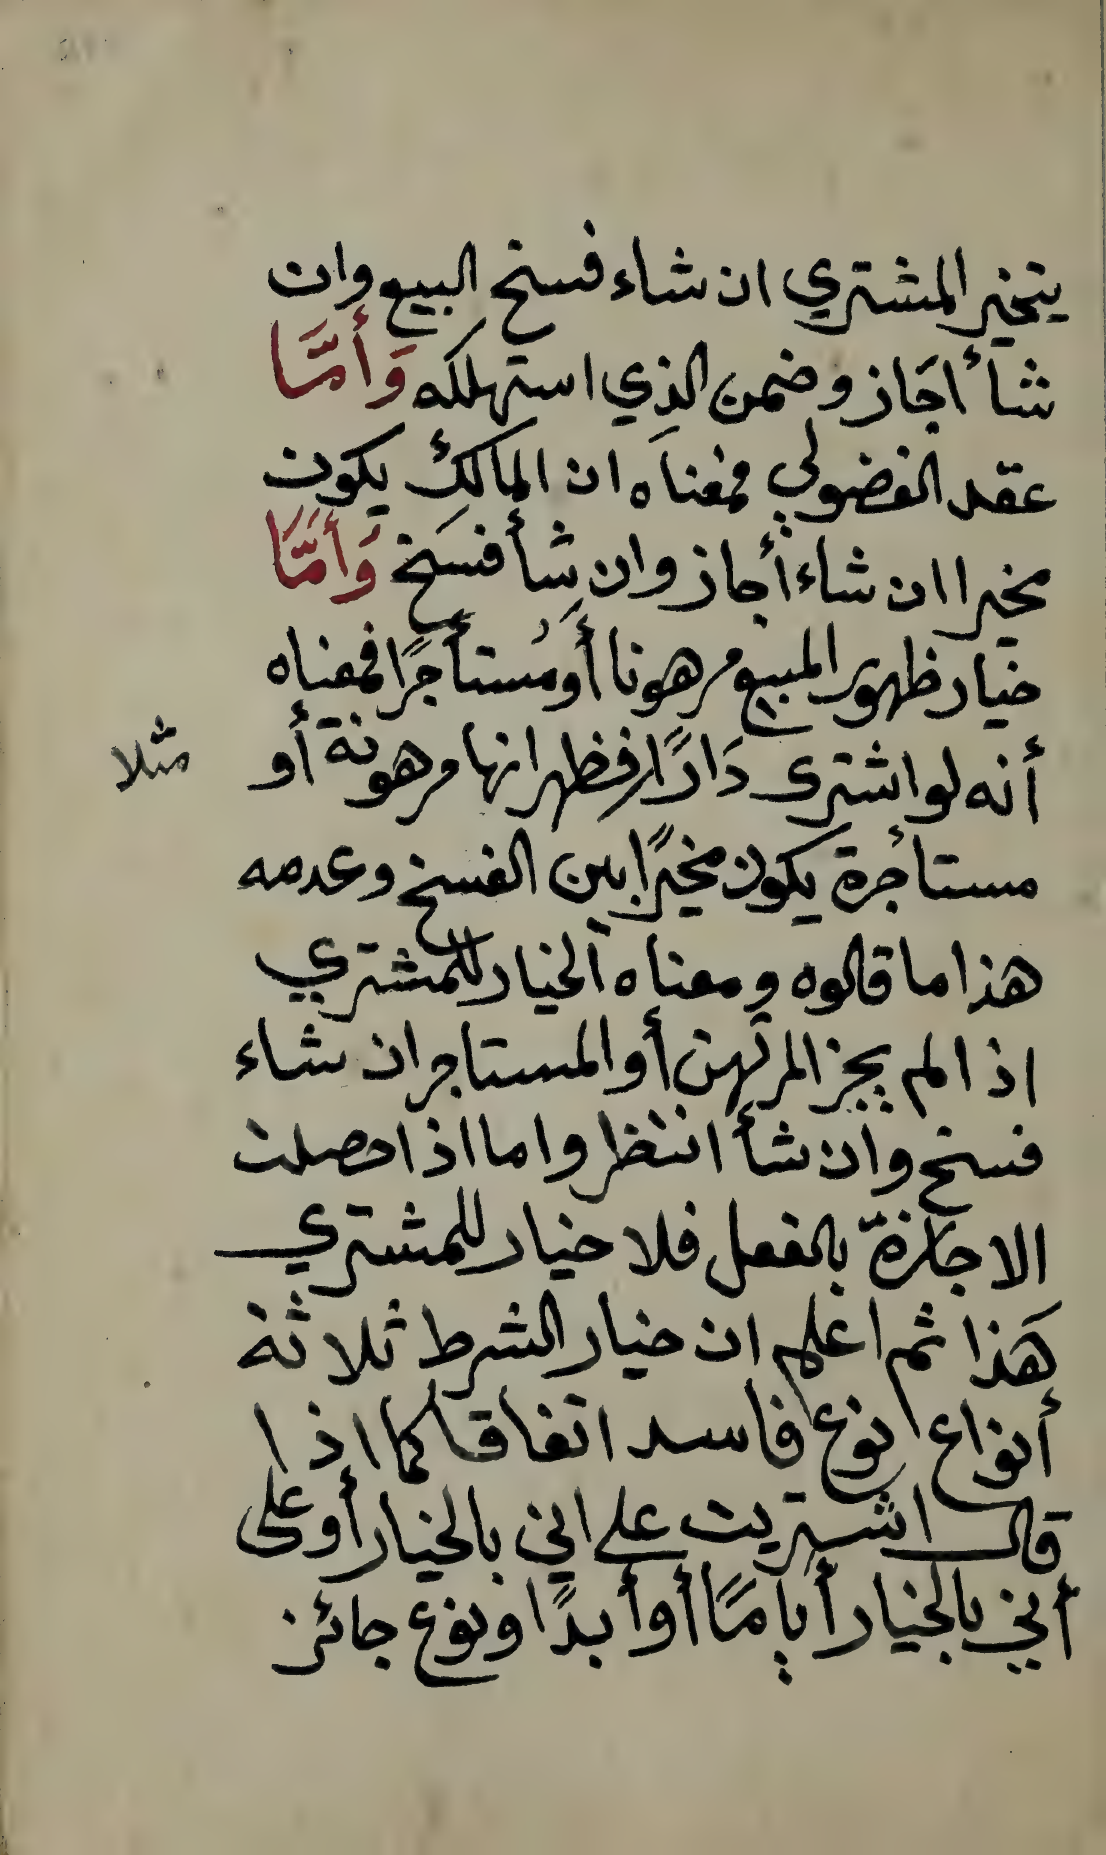 يتخير المشتري ان شاء فسخ البيع وان
شأ اجَاز وضمن الذِي استهلكه وَأمَّا
عقد الفضولي فمعناه ان المالكِ يكون
مخيرا ان شاء أجاز وان شأ فسَخ وَأمَّا
خيار ظهور المبيع مرهونا أو مُستأجرًا فمعناه
أنه لو اشترى دَارًا فظهر انها مرهونة أو
مثلا
مستأجرة يكون مخيرًا بين الفسخ وعدمه
هذا ما قالوه ومعناه الخيار للمشتري
اذا لم يجز المرتهن أو المستاجر ان شاء
فسخ وان شأ انتظر واما اذا حصلت
الاجازة بالفعل فلا خيار للمشتري
هَذا ثم اعلم ان خيار الشرط ثلاثة
أنواع نوع فاسد اتفاقا كما اذا
قال اشتريت على اني بالخيار أو على
أني بالخيار أيامًا أو أبدًا ونوع جائز